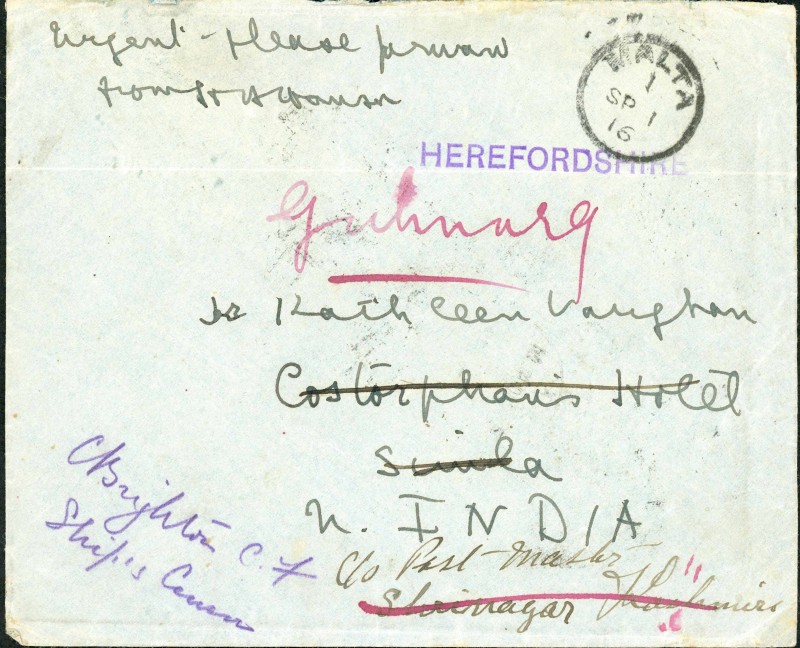 Urgent - Please forward
from
MALTA
1
SP 1
16
HEREFORDSHIRE
Gulmarg
Dr Kathleen Vaughan
Costorphan's Hotel
Simla
N. INDIA
C Brighton C.F
Ship's Censor
C/o Post-Master
Shrinagar Kashmire